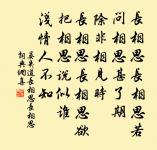 長相思長相思若
問相思甚了期
除非相見時
長相思長相思欲
把相思說似誰
淺情人不知
晏幾道長相思長相思
詞典網書